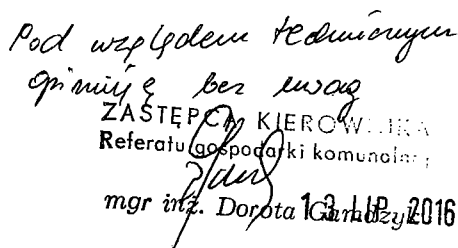 Pod względem technicznym
opiniuję bez uwag
ZASTĘPCA KIEROWNIKA
Referatu gospodarki komunalnej
mgr inż. Dorota
13 LIP. 2016